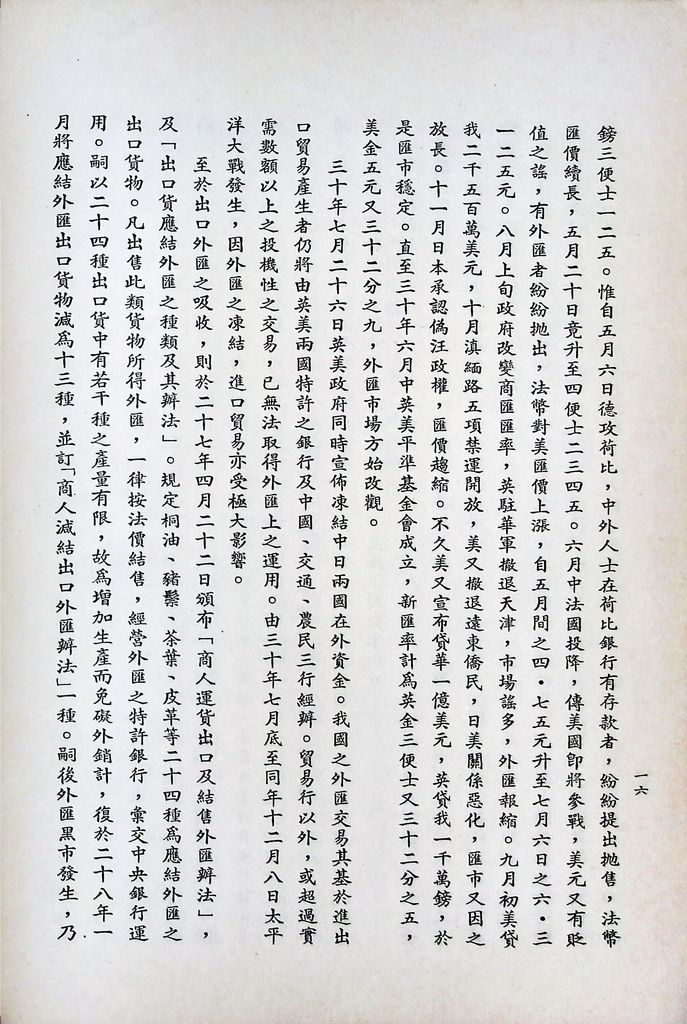 鎊三便士一二五。惟自五月六日德攻荷比，中外人士在荷比銀行有存款者，紛紛提出拋售，法幣
匯價續長，五月二十日竟升至四便士二三四五。六月中法國投降，傳美國卽將參戰，美元又有貶
值之謠，有外匯者紛紛拋出，法幣對美匯價上漲，自五月間之四・七五元升至七月六日之六・三
一二五元。八月上旬政府改變商匯匯率，英駐華軍撤退天津，市場謠多，外匯報縮。九月初美貸
我二千五百萬美元，十月滇緬路五項禁運開放，美又撤退遠東僑民，日美關係惡化，匯市又因之
放長。十一月日本承認偽汪政權，匯價趨縮。不久美又宣布貸華一億美元，英貸我一千萬鎊，於
是匯市穩定。直至三十年六月中英美平準基金會成立，新匯率計爲英金三便士又三十二分之五，
美金五元又三十二分之九，外匯市場方始改觀。
三十年七月二十六日英美政府同時宣佈凍結中日兩國在外資金。我國之外匯交易其基於進出
口貿易產生者仍將由英美兩國特許之銀行及中國、交通、農民三行經辦。貿易行以外，或超過實
需數額以上之投機性之交易，已無法取得外匯上之運用。由三十年七月底至同年十二月八日太平
洋大戰發生，因外匯之凍結，進口貿易亦受極大影響。
至於出口外匯之吸收，則於二十七年四月二十二日頒布「商人運貨出口及結售外匯辦法」，
及「出口貨應結外匯之種類及其辦法」。規定桐油、豬鬃、茶葉、皮革等二十四種爲應結外匯之
出口貨物。凡出售此類貨物所得外匯，一律按法價結售，經營外匯之特許銀行，彙交中央銀行運
用。嗣以二十四種出口貨中有若干種之產量有限，故爲增加生產而免礙外銷計，復於二十八年一
月將應結外匯出口貨物減爲十三種，並訂「商人減結出口外匯辦法」一種。嗣後外匯黑市發生，乃
一六